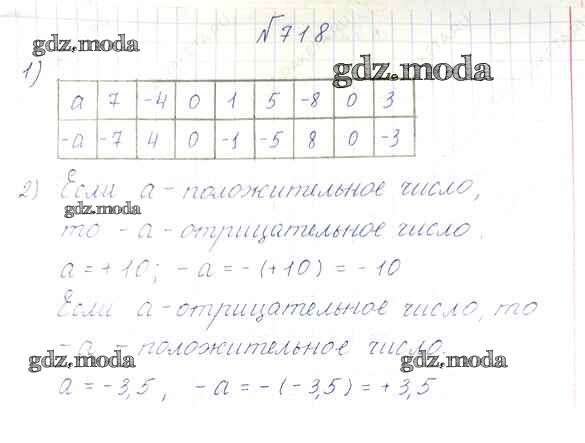 №718
gdz.moda
1)
gdz.moda
a 7 -4 0 1 5 -8 0 3
-a -7 4 0 -1 -5 8 0 -3
2) Если a - положительное число,
gdz.moda
то -a - отрицательное число.
a = +10; -a = -(+10) = -10
Если a - отрицательное число, то
-a - положительное число.
gdz.moda gdz.moda
a = -3,5, -a = -(-3,5) = +3,5